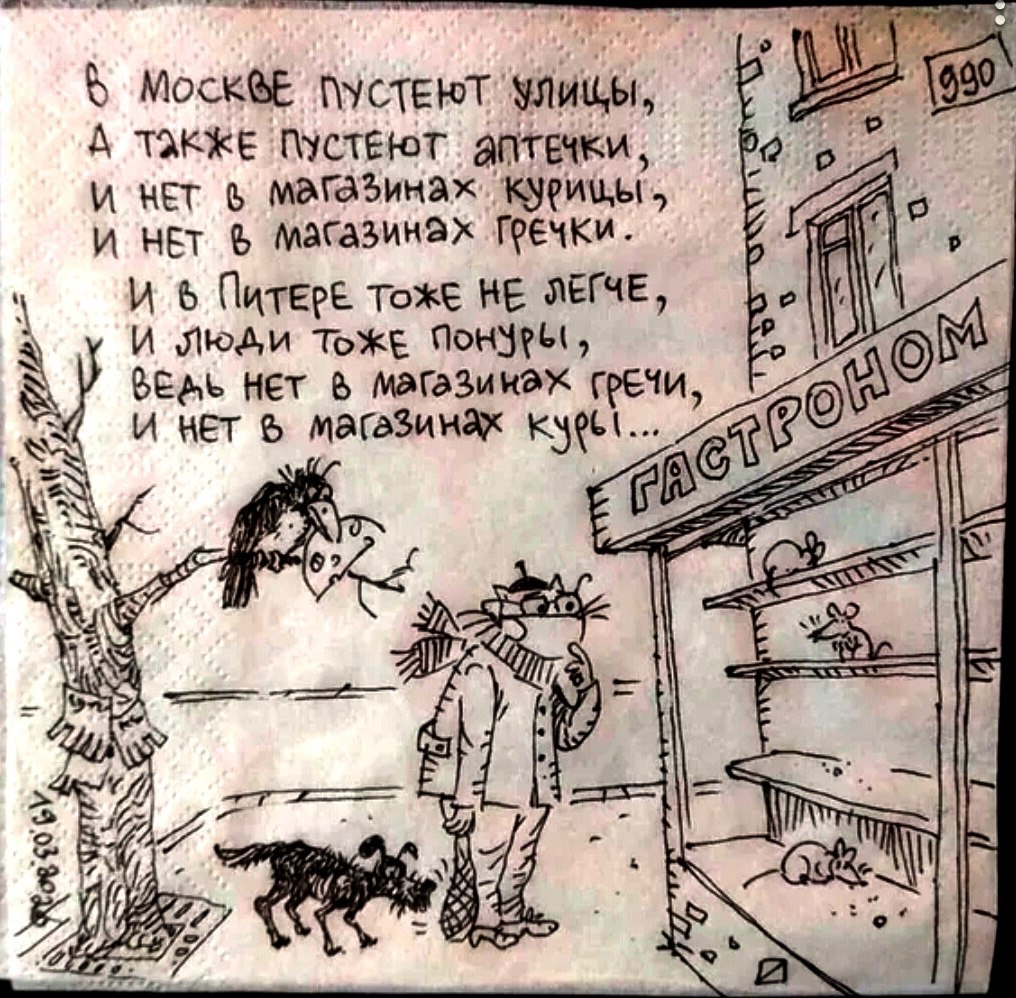 В МОСКВЕ ПУСТЕЮТ УЛИЦЫ,
А ТАКЖЕ ПУСТЕЮТ АПТЕЧКИ,
И НЕТ В МАГАЗИНАХ КУРИЦЫ,
И НЕТ В МАГАЗИНАХ ГРЕЧКИ.
И В ПИТЕРЕ ТОЖЕ НЕ ЛЕГЧЕ,
И ЛЮДИ ТОЖЕ ПОНУРЫ,
ВЕДЬ НЕТ В МАГАЗИНАХ ГРЕЧИ,
И НЕТ В МАГАЗИНАХ КУРЫ...
990
ГАСТРОНОМ